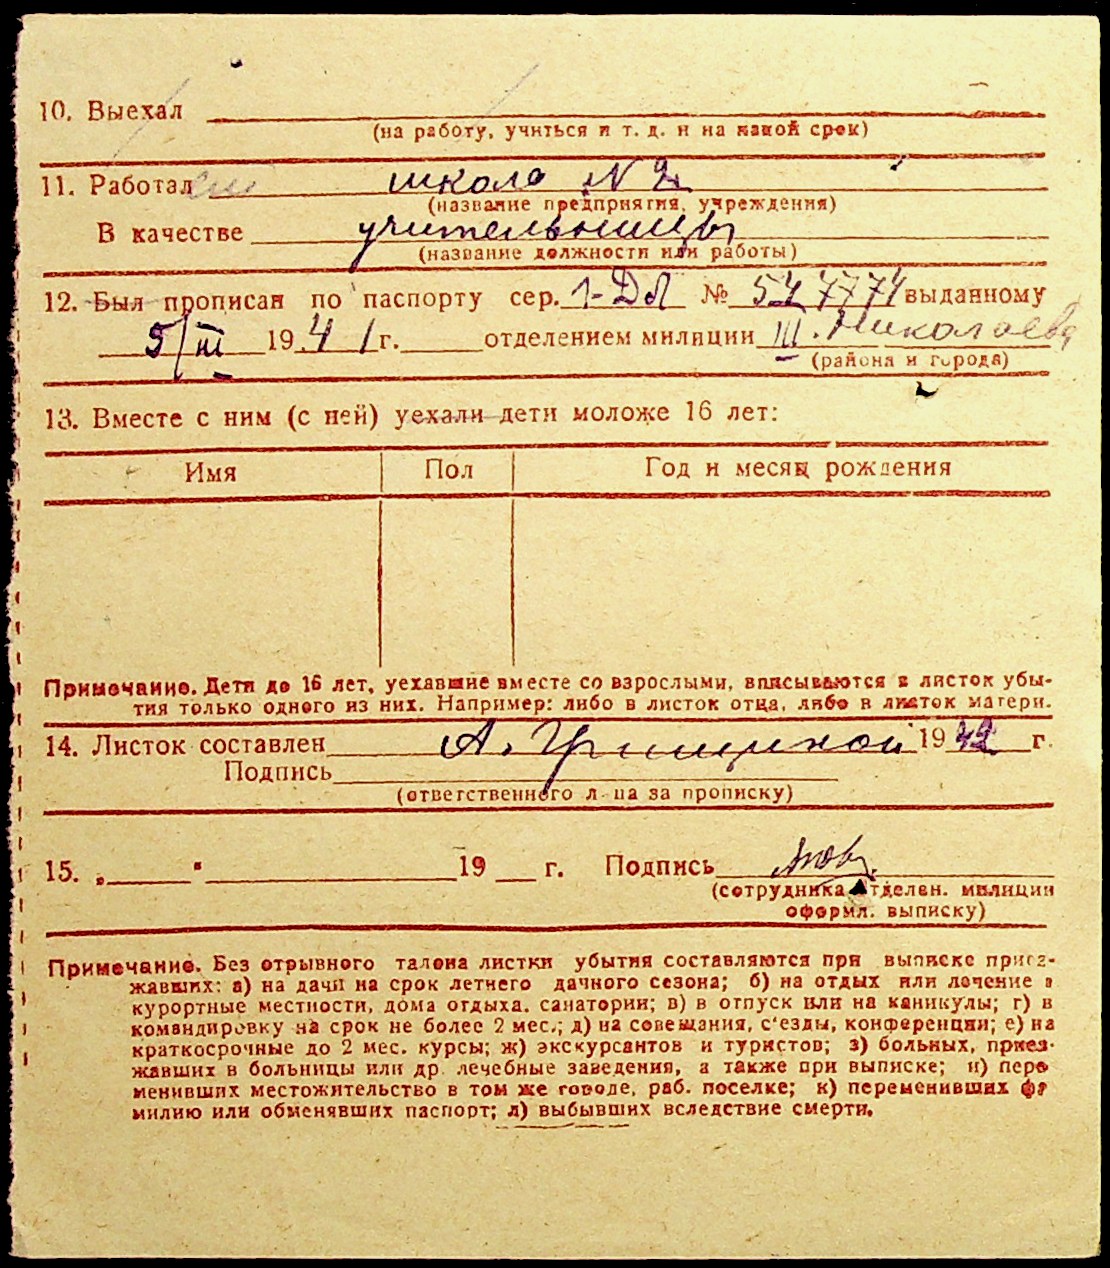 10. Выехал
(на работу, учиться и т. д. и на какой срок)
11. Работал школа № 2
(название предприятия, учреждения)
В качестве учительницы
(название должности или работы)
12. Был прописан по паспорту сер. 1-ДЛ № 547774 выданному
5/III 1941 г. отделением милиции III. Николаева
(района и города)
13. Вместе с ним (с ней) уехали дети моложе 16 лет:
Имя Пол Год и месяц рождения
Примечание. Дети до 16 лет, уехавшие вместе со взрослыми, вписываются в листок убы-
тия только одного из них. Например: либо в листок отца, либо в листок матери.
14. Листок составлен А. Грищиной 1942 г.
Подпись
(ответственного лица за прописку)
15. „ " 19 г. Подпись
(сотрудника отделен. милиции
оформл. выписку)
Примечание. Без отрывного талона листки убытия составляются при выписке приез-
жавших: а) на дачи на срок летнего дачного сезона; б) на отдых или лечение в
курортные местности, дома отдыха, санатории; в) в отпуск или на каникулы; г) в
командировку на срок не более 2 мес.; д) на совещания, с'езды, конференции; е) на
краткосрочные до 2 мес. курсы; ж) экскурсантов и туристов; з) больных, приез-
жавших в больницы или др. лечебные заведения, а также при выписке; и) пере
менивших местожительство в том же городе, раб. поселке; к) переменивших фа
милию или обменявших паспорт; л) выбывших вследствие смерти.